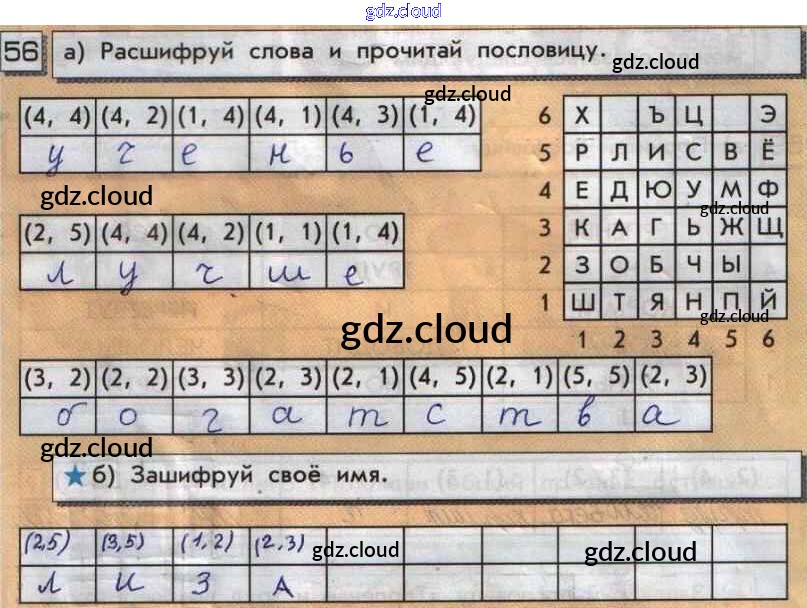 gdz.cloud
56 а) Расшифруй слова и прочитай пословицу.
gdz.cloud
gdz.cloud
(4, 4) (4, 2) (1, 4) (4, 1) (4, 3) (1, 4)
у ч е н ь е
gdz.cloud
(2, 5) (4, 4) (4, 2) (1, 1) (1, 4)
л у ч ш е
6 Х Ъ Ц Э
5 Р Л И С В Ё
4 Е Д Ю У М Ф
gdz.cloud
3 К А Г Ь Ж Щ
2 З О Б Ч Ы
1 Ш Т Я Н П Й
gdz.cloud
1 2 3 4 5 6
gdz.cloud
(3, 2) (2, 2) (3, 3) (2, 3) (2, 1) (4, 5) (2, 1) (5, 5) (2, 3)
б о г а т с т в а
gdz.cloud
★ б) Зашифруй своё имя.
(2,5) (3,5) (1,2) (2,3)
л и з а
gdz.cloud
gdz.cloud